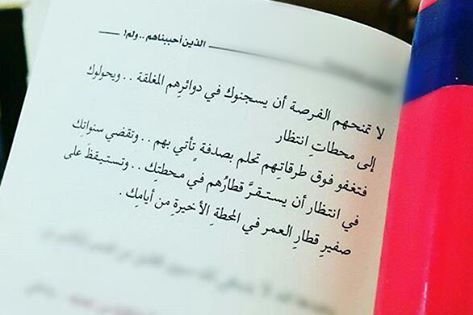 الذين أحببناهم..ولم!
لا تمنحهم الفرصة أن يسجنوك في دوائرهم المغلقة . . ويحولوك
إلى محطاتِ انتظار
فتغفو فوق طرقاتِهم تحلم بصدفةٍ تأتي بهم . . وتقضي سنواتك
في انتظار أن يستقرَّ قطارُهم في محطتك . . وتستيقظَ على
صفيرِ قطارِ العمر في المحطةِ الأخيرةِ من أيامِك .